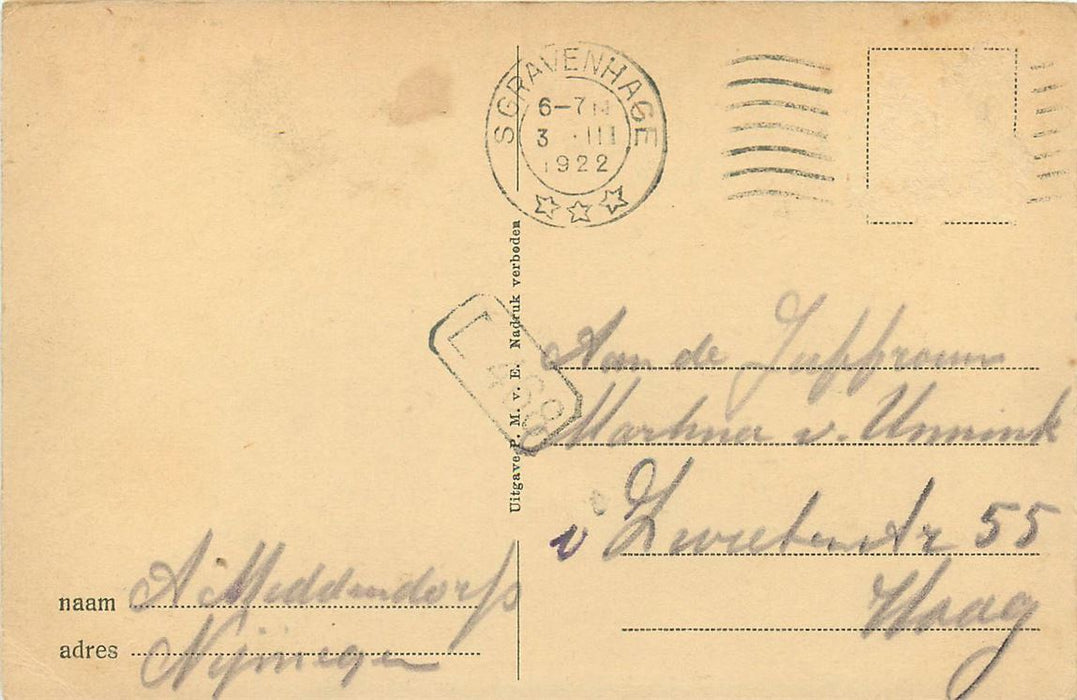 SGRAVENHAGE
6-7N
3 III
1922
Uitgave P. M. v. E. Nadruk verboden
L
Aan de Juffrouw
Martina v. Unnink
v Zwietenstr 55
Haag
naam A Middendorp
adres Nijmegen